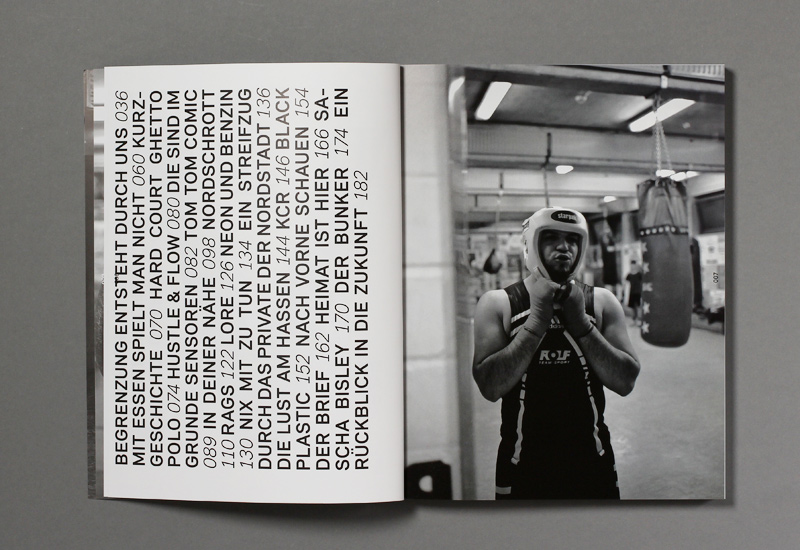 BEGRENZUNG ENTSTEHT DURCH UNS 036
MIT ESSEN SPIELT MAN NICHT 060 KURZ-
GESCHICHTE 070 HARD COURT GHETTO
POLO 074 HUSTLE & FLOW 080 DIE SIND IM
GRUNDE SENSOREN 082 TOM TOM COMIC
089 IN DEINER NÄHE 098 NORDSCHROTT
110 RAGS 122 LORE 126 NEON UND BENZIN
130 NIX MIT ZU TUN 134 EIN STREIFZUG
DURCH DAS PRIVATE DER NORDSTADT 136
DIE LUST AM HASSEN 144 KCR 146 BLACK
PLASTIC 152 NACH VORNE SCHAUEN 154
DER BRIEF 162 HEIMAT IST HIER 166 SA-
SCHA BISLEY 170 DER BUNKER 174 EIN
RÜCKBLICK IN DIE ZUKUNFT 182
ROLF
TEAM SPORT
007